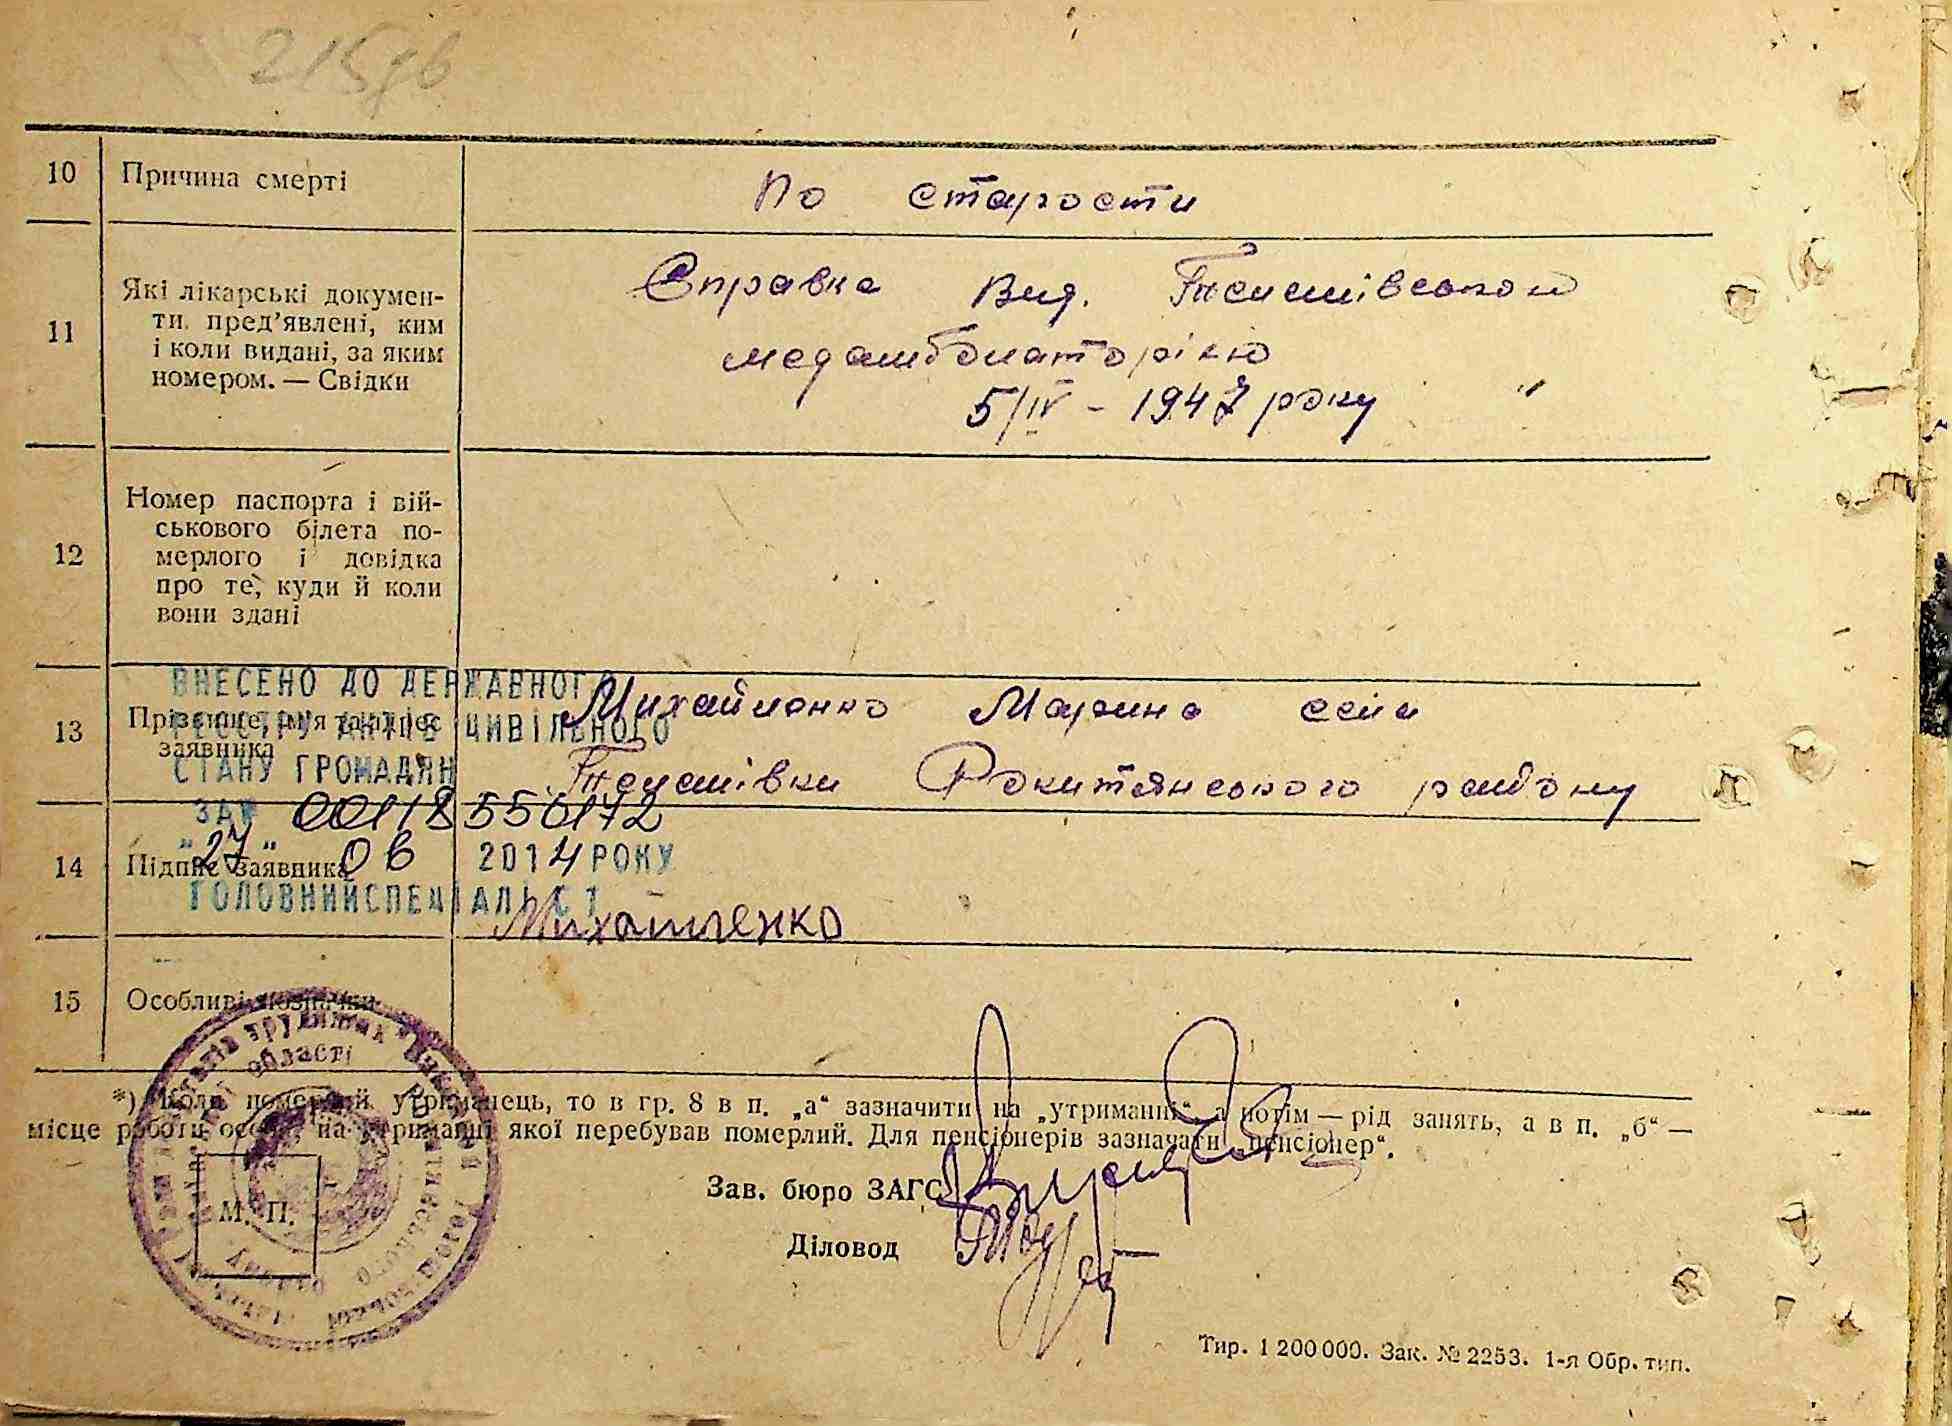 215зв
10 Причина смерті По старости
11 Які лікарські докумен-
ти пред'явлені, ким
і коли видані, за яким
номером. — Свідки
Справка Вид.
медамбулаторією
5/IV - 1947 року
12 Номер паспорта і вій-
ськового білета по-
мерлого і довідка
про те, куди й коли
вони здані
13 Прізвище, імя та адрес
заявника
Михайленко Марина села
Рокитянського району
ВНЕСЕНО ДО ДЕРЖАВНОГО
РЕЄСТРУ АКТІВ ЦИВІЛЬНОГО
СТАНУ ГРОМАДЯН
ЗА № 00118556172
"27" 06 2014 РОКУ
ГОЛОВНИЙ СПЕЦІАЛІСТ
14 Підпис заявника
Михайленко
15 Особливі позначки
*) Коли померлий утриманець, то в гр. 8 в п. „а“ зазначити на „утриманні“ а потім — рід занять, а в п. „б“ —
місце роботи особи, на утриманні якої перебував померлий. Для пенсіонерів зазначати „пенсіонер“.
Зав. бюро ЗАГС
М. П.
Діловод
Тир. 1 200 000. Зак. № 2253. 1-я Обр. тип.